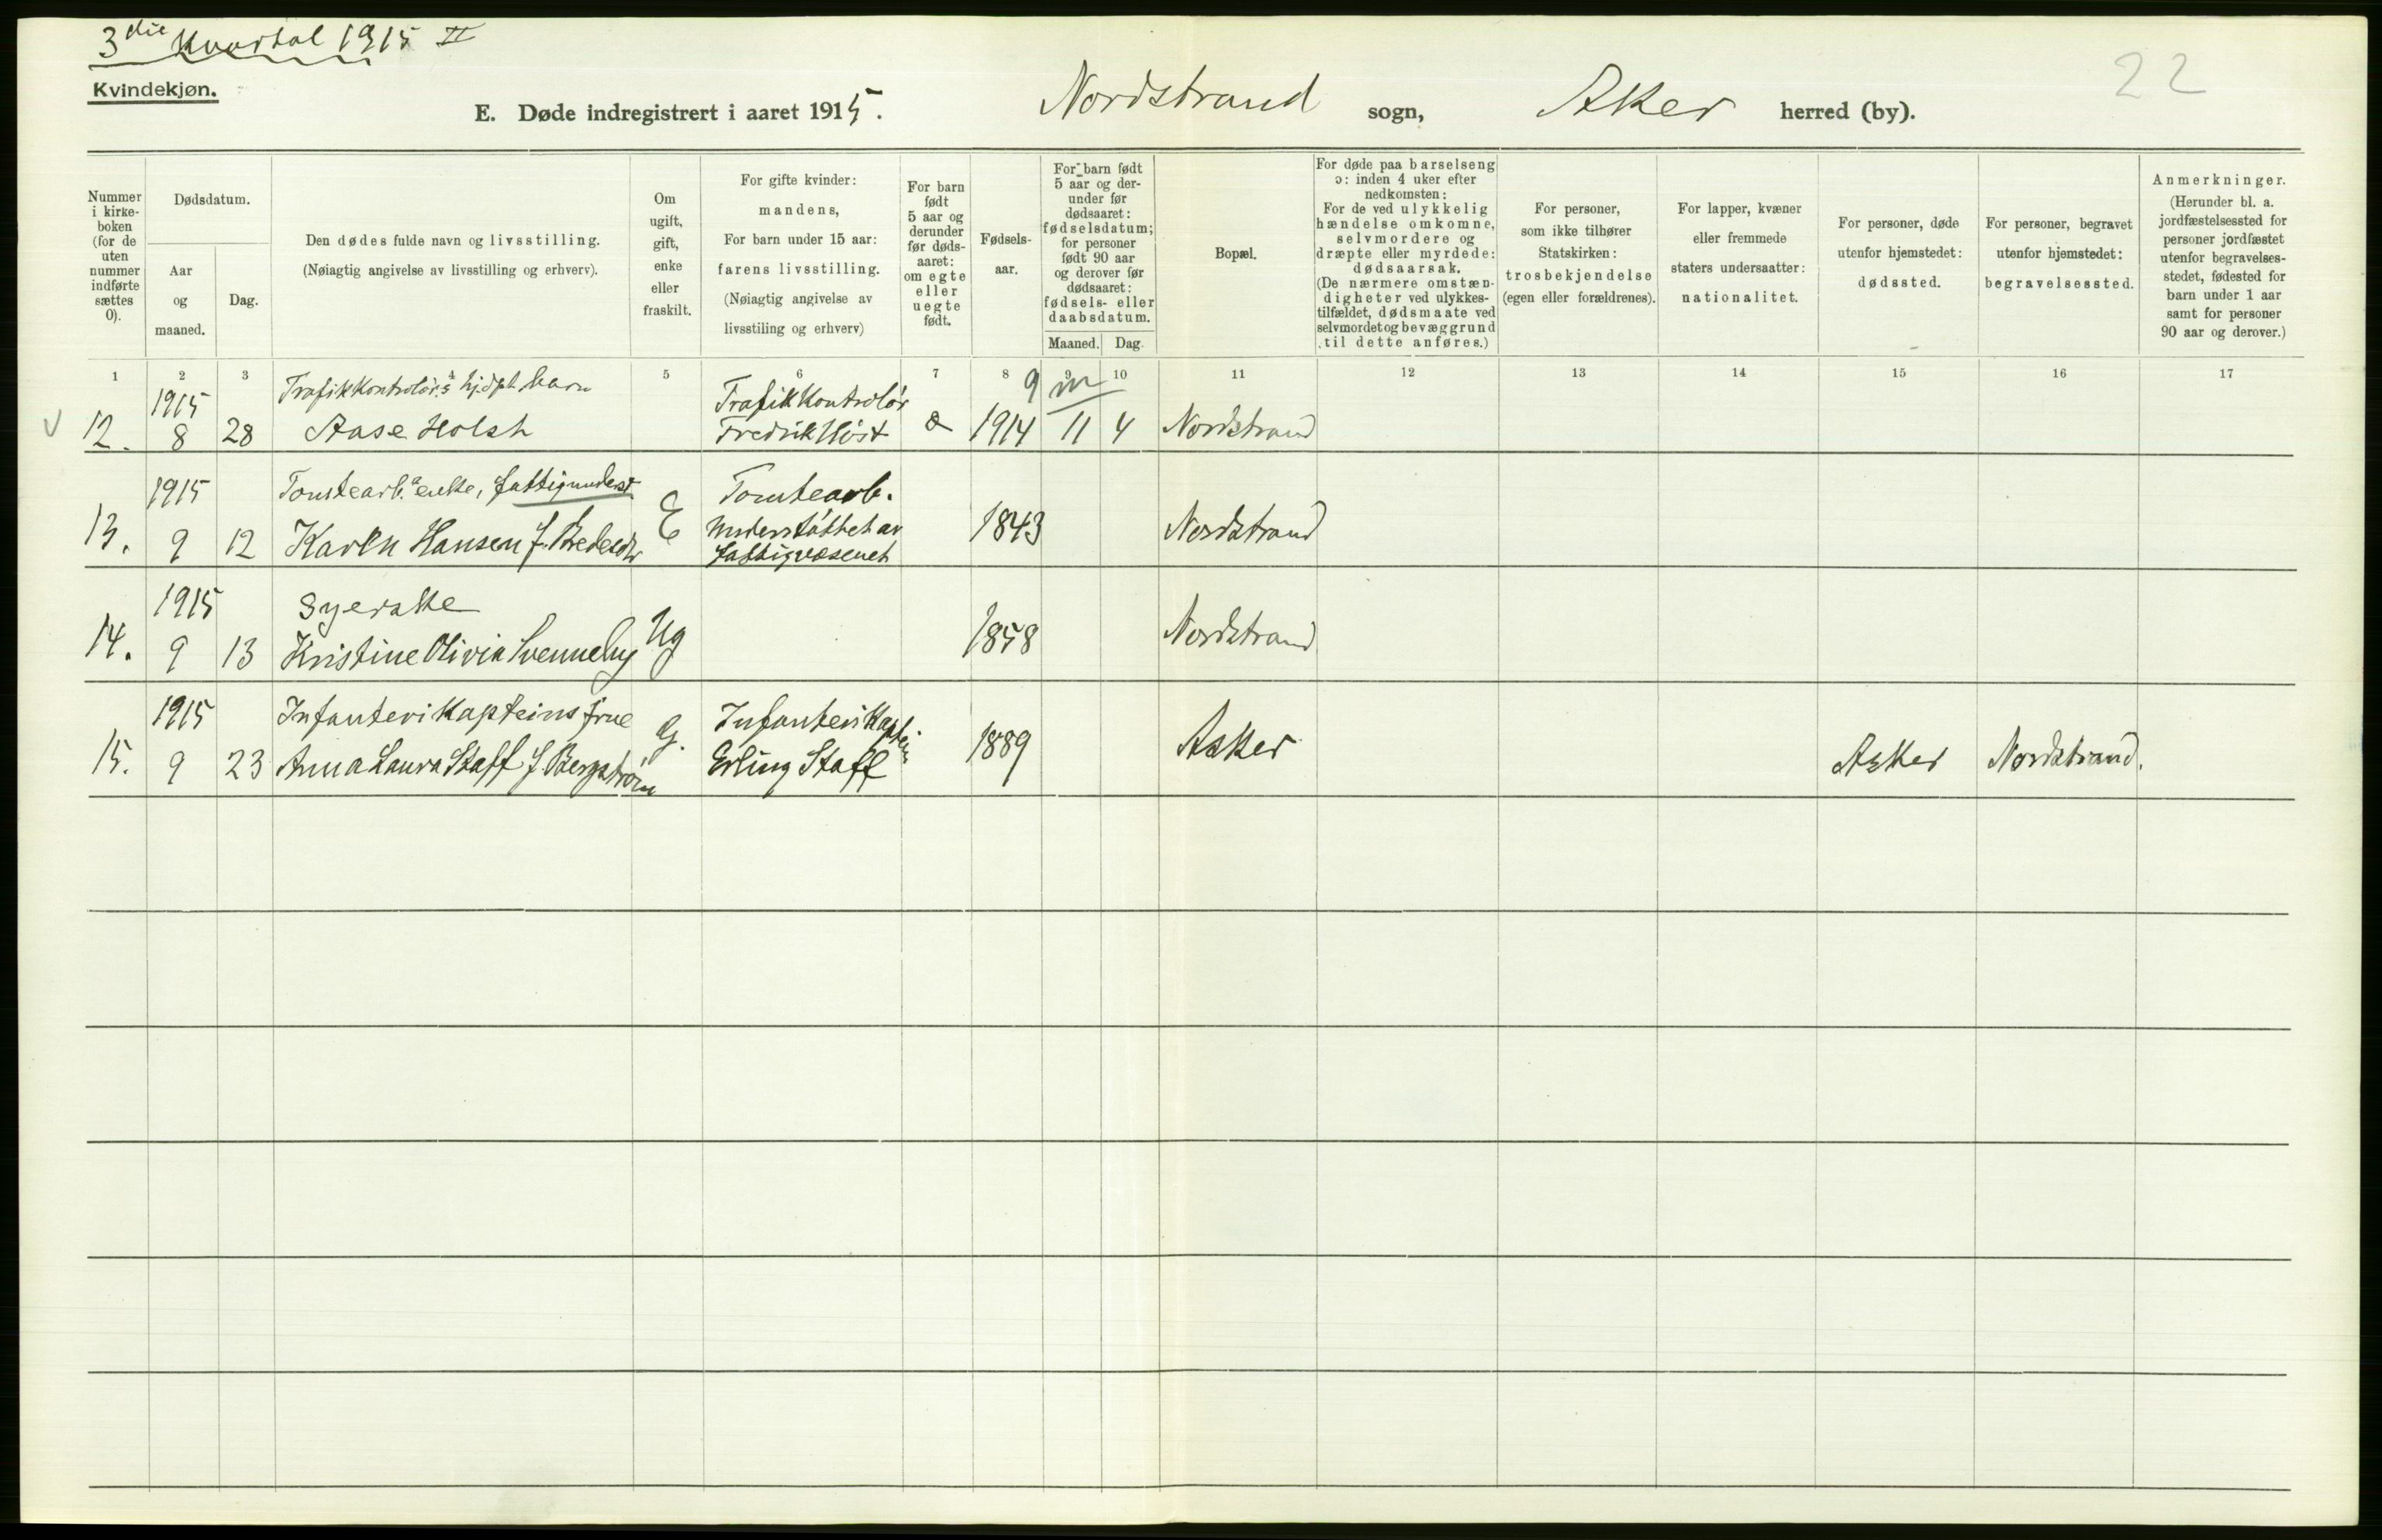 3die Kvartal 1915 II
Kvindekjøn.
22
E. Døde indregistrert i aaret 1915. Nordstrand sogn, Aker herred (by).
Nummer
i kirke-
boken
(for de
uten
nummer
indførte
sættes
0).
Dødsdatum.
Aar
og
maaned.
Dag.
Den dødes fulde navn og livsstilling.
(Nøiagtig angivelse av livsstilling og erhverv).
Om
ugift,
gift,
enke
eller
fraskilt.
For gifte kvinder:
mandens,
For barn under 15 aar:
farens livsstilling.
(Nøiagtig angivelse av
livsstiling og erhverv)
For barn
født
5 aar og
derunder
før døds-
aaret:
om egte
eller
uegte
født.
Fødsels-
aar.
For barn født
5 aar og der-
under før
dødsaaret:
fødselsdatum;
for personer
født 90 aar
og derover før
dødsaaret:
fødsels- eller
daabsdatum.
Maaned. Dag.
Bopæl.
For døde paa barselseng
ɔ: inden 4 uker efter
nedkomsten:
For de ved ulykkelig
hændelse omkomne,
selvmordere og
dræpte eller myrdede:
dødsaarsak.
(De nærmere omstæn-
digheter ved ulykkes-
tilfældet, dødsmaate ved
selvmordet og bevæggrund
til dette anføres.)
For personer,
som ikke tilhører
Statskirken:
trosbekjendelse
(egen eller forældrenes).
For lapper, kvæner
eller fremmede
staters undersaatter:
nationalitet.
For personer, døde
utenfor hjemstedet:
dødssted.
For personer, begravet
utenfor hjemstedet:
begravelsessted.
Anmerkninger.
(Herunder bl. a.
jordfæstelsessted for
personer jordfæstet
utenfor begravelses-
stedet, fødested for
barn under 1 aar
samt for personer
90 aar og derover.)
1 2 3 4 5 6 7 8 9 10 11 12 13 14 15 16 17
1915 Trafikkontrolørs hjdpt barn Trafikkontrolør 9 m
12. 8 28 Aase Holst Fredrik 1914 11 4 Nordstrand
1915 Tomtearb. enke, fattigunderst Tomtearb.
13. 9 12 Karen Hansen f. E Understøttet av 1843 Nordstrand
fattigvæsenet
1915 Syerske
14. 9 13 Kristine Olivia Svenneby Ug 1858 Nordstrand
1915 Infanterikapteins frue Infanterikaptein
15. 9 23 Anna Laura Staff f. Bergstrøm G. Erling Staff 1889 Asker Asker Nordstrand.